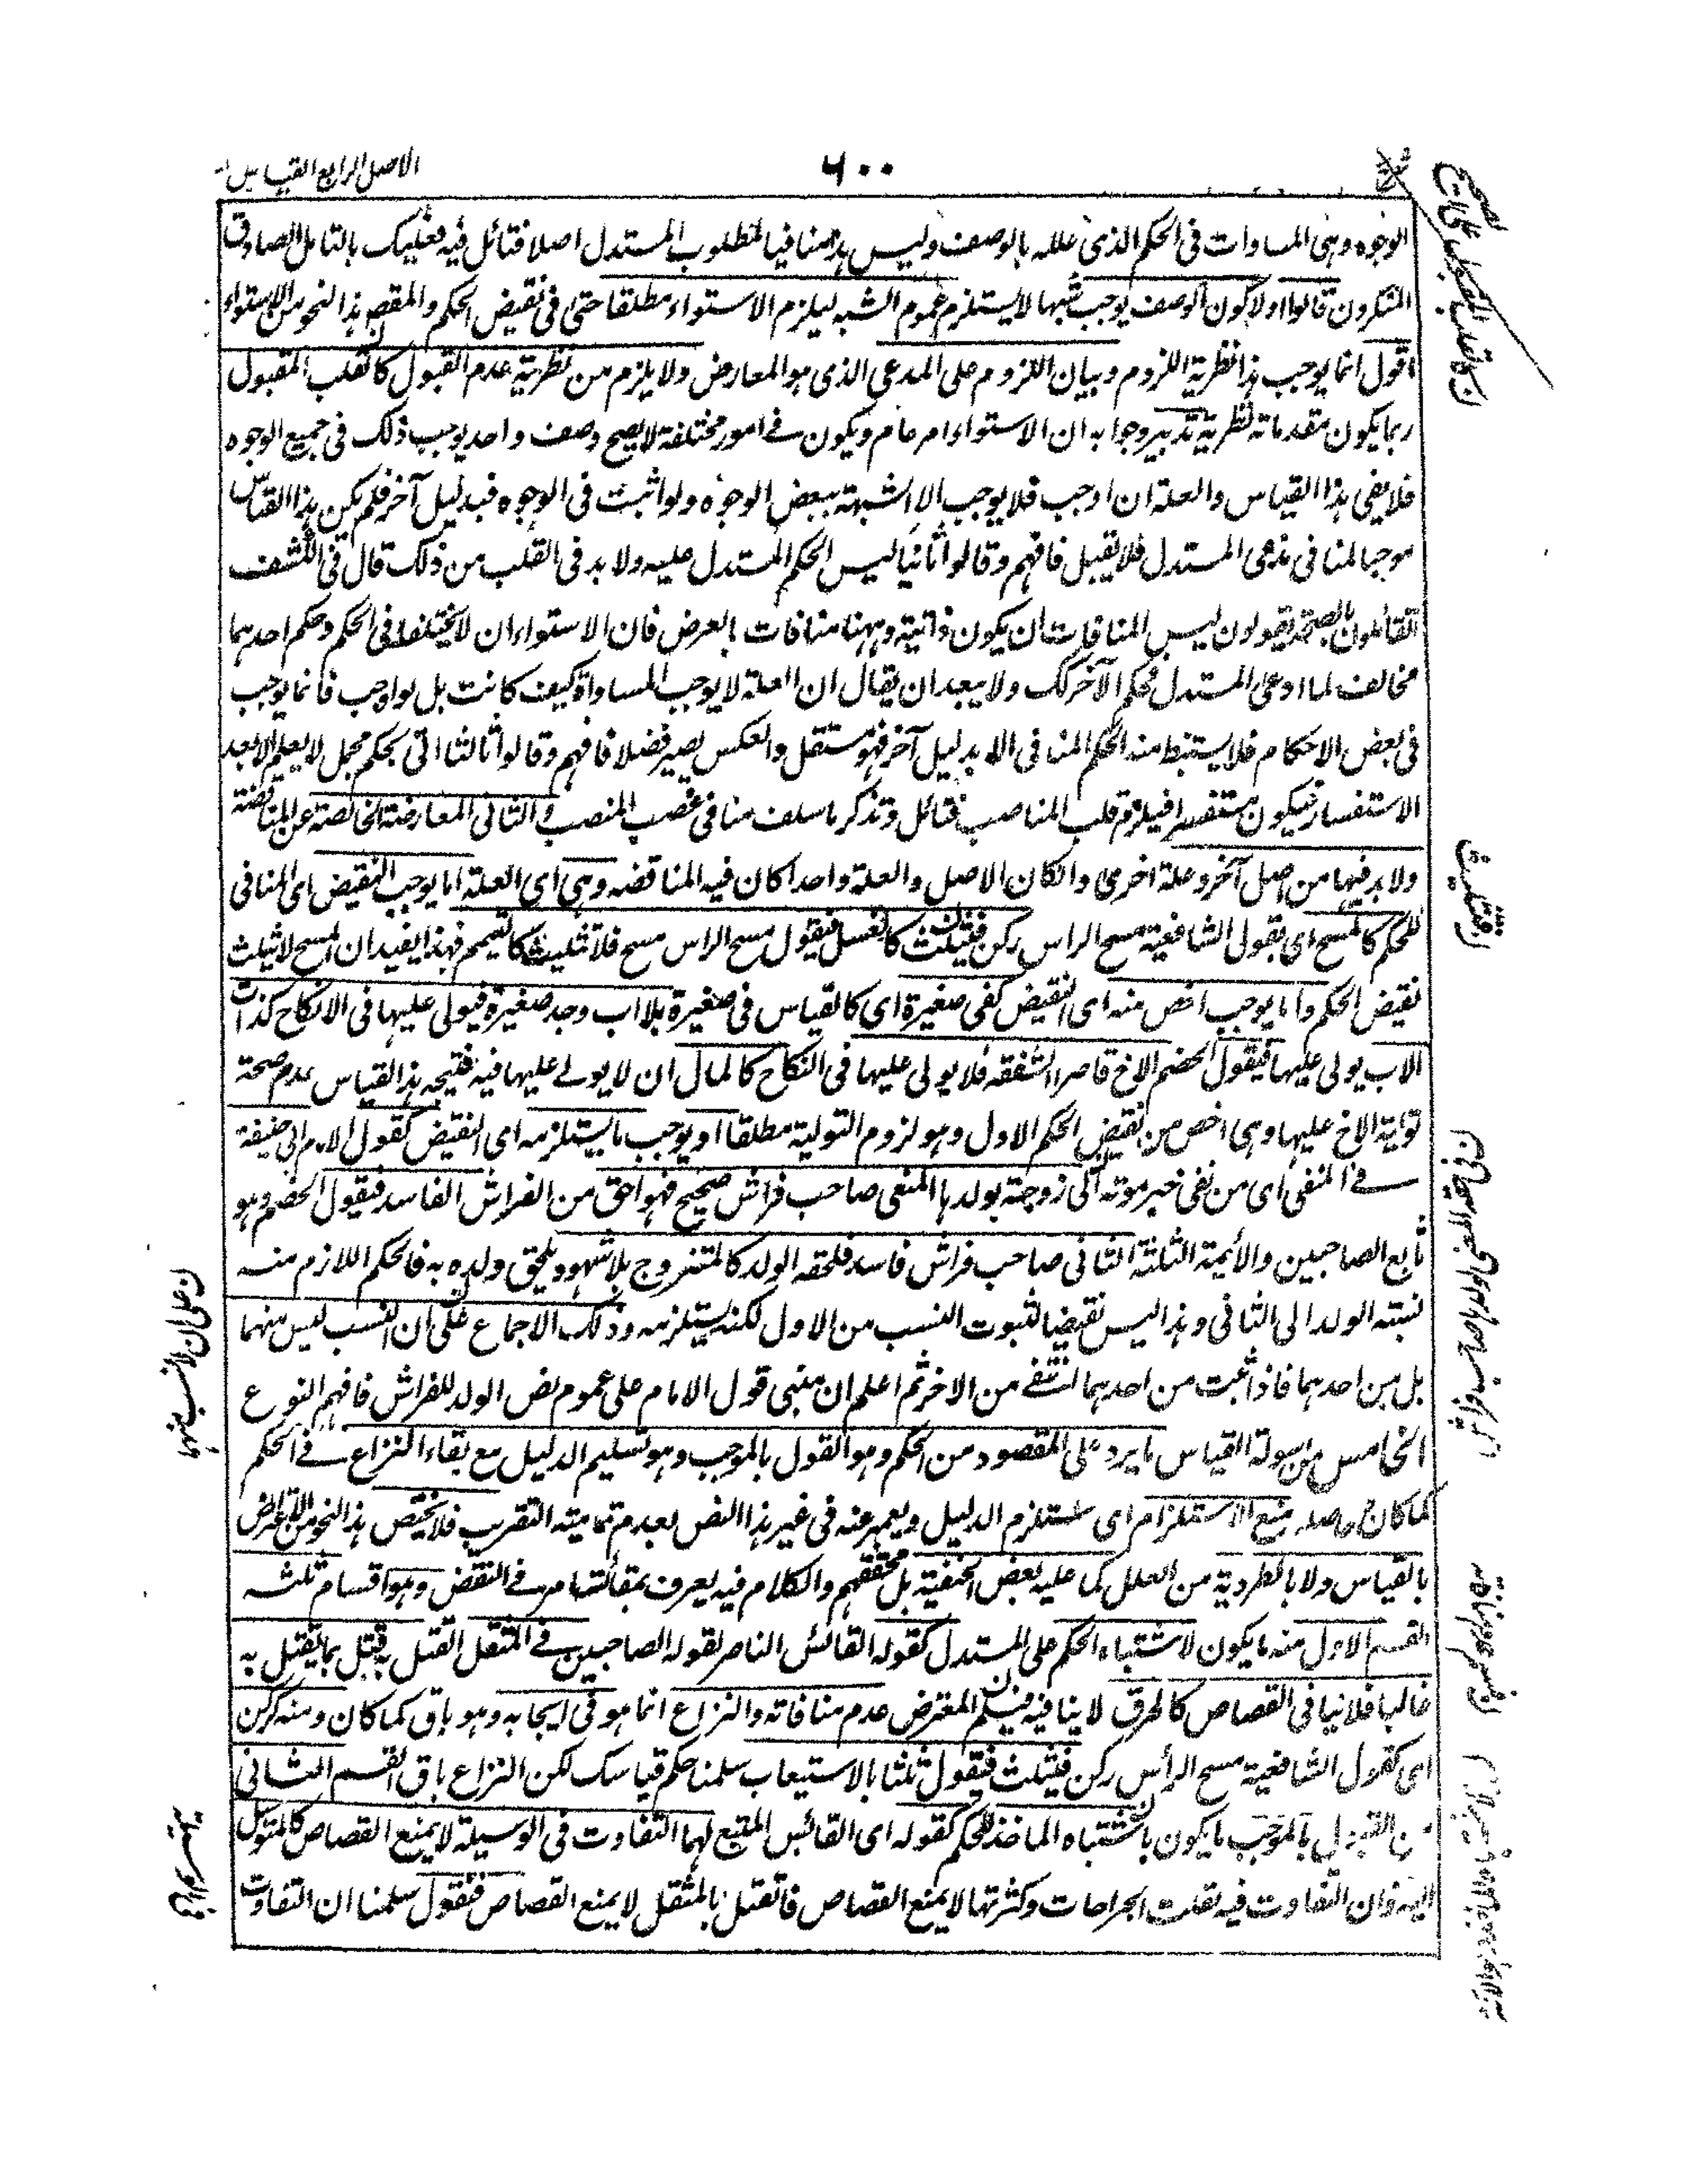 الاصل الرابع القياس
٦٠٠
الوجوه وهى المساوات فى الحكم الذى علله بالوصف وليس هذا منافيا لمطلوب المستدل اصلا فتائل فيه فعليك بالتامل الصادق
المنكرون قالوا اولا كون الوصف يوجب شبها لا يستلزم عموم الشبه ليلزم الاستواء مطلقا حتى فى نقيض الحكم والمقصود هذا النحو من الاستواء
اقول انما يوجب هذا نظرية اللزوم وبيان اللزوم على المدعى الذى هو المعارض ولا يلزم من نظرية عدم القبول كالقلب المقبول
ربما يكون مقدماته نظرية تدبر وجوابه ان الاستواء امر عام ويكون فے امور مختلفة لا يصح وصف واحد يوجب ذلك فى جميع الوجوه
فلا يفى هذا القياس والعلة ان اوجب فلا يوجب الا الشبهة ببعض الوجوه ولو اثبت فى الوجوه فبدليل آخر فلم يكن هذا القياس
موجبا لمنافى مدعى المستدل فلا يقبل فافهم وقالوا ثانيا ليس الحكم المستدل عليه ولا بد فى القلب من ذلك قال فى الكشف
القائلون بالصحة يقولون ليس المنافات ان يكون ذاتية وههنا منافات بالعرض فان الاستواء ان لا يختلفا فى الحكم وحكم احدهما
مخالف لما ادعى المستدل فحكم الآخر كك ولا يبعد ان يقال ان العلة لا يوجب المساواة كيف كانت بل لو اوجب فانما يوجب
فى بعض الاحكام فلا يستنبط منه الحكم المنافى الا بدليل آخر فهو مستقل والعكس يصير فضلا فافهم وقالوا ثالثا اتى بحكم مجمل لا يعلم الا بعد
الاستفسار فيكون مستفسرا فيلزم قلب المناصب فتائل وتذكر ما سلف منا فى غصب المنصب والثانى المعارضة الخالصة عن المناقضة
ولا بد فيها من اصل آخر وعلة اخرى وان كان الاصل والعلة واحدا كان فيه المناقضه وهى اى العلة اما يوجب النقيض اى المنافى
للحكم كالمسح اى بقول الشافعية مسح الراس ركن فيثلث كالغسل فيقول مسح الراس مسح فلا تثليث كالتيمم فهذا يفيد ان المسح لا تثليث
نقيض الحكم واما يوجب اخص منه اى النقيض كفى صغيرة اى كالقياس فى صغيرة بلا اب وجد صغيرة فيولى عليها فى الانكاح كذات
الاب يولى عليها فيقول الخصم الاخ قاصر الشفقه فلا يولى عليها فى النكاح كالمال ان لا يولے عليها فيه فنتيجه هذا القياس عدم صحة
تولية الاخ عليها وهى اخص من نقيض الحكم الاول وهو لزوم التولية مطلقا او يوجب ما يستلزمه اى النقيض كقول الامام ابى حنيفة
فے المنعى اى من نعى خبر موته الى زوجته بولدها المنعى صاحب فراش صحيح فهو احق من الفراش الفاسد فيقول الخصم وهو
تابع الصاحبين والأيمة الثلثة الثانى صاحب فراش فاسد فلحقه الولد كالمتزوج بلا شهود يلحق ولده به فالحكم اللازم منه
نسبته الولد الى الثانى وهذا ليس نقيضا لثبوت النسب من الاول لكنه يستلزمه وذلك الاجماع على ان النسب ليس منهما
بل من احدهما فاذا ثبت من احدهما انتفے من الاخر ثم اعلم ان مبنى قول الامام على عموم نص الولد للفراش فافهم النوع
الخامس من اسولة القياس ما يرد على المقصود من الحكم وهو القول بالموجب وهو تسليم الدليل مع بقاء النزاع فے الحكم
كما كان حاصله منع الاستلزام اى استلزام الدليل ويعبر عنه فى غير هذا النص بعدم تمامية التقريب فلا يختص هذا النحو من الاعتراض
بالقياس ولا بالطردية من العلل كما عليه بعض الحنفية بل محققهم والكلام فيه يعرف بمقائسة ما مر فے النقض وهو اقسام ثلثه
القسم الاول منه ما يكون لاشتباه الحكم على المستدل كقوله القائس الناصر لقوله الصاحبين فے المثقل القتل به قتل بما يقتل به
غالبا فلا ينافى القصاص كالحرق لا ينافيه فيسلم المعترض عدم منافاته والنزاع انما هو فى ايجابه وهو باق كما كان ومنه كركن
اى كقول الشافعية مسح الرأس ركن فيثلث فيقول ثلثنا بالاستيعاب سلمنا حكم قياسك لكن النزاع باق القسم الثانى
من القول بالموجب ما يكون باشتباه الماخذ للحكم كقوله اى القائس المتبع لهما التفاوت فى الوسيلة لا يمنع القصاص كالمتوسل
اليه فان التفاوت فيه بقلت الجراحات وكثرتها لا يمنع القصاص فالقتل بالمثقل لا يمنع القصاص فنقول سلمنا ان التفاوت
ن فتثليث
ن على ان لا نسب منهما